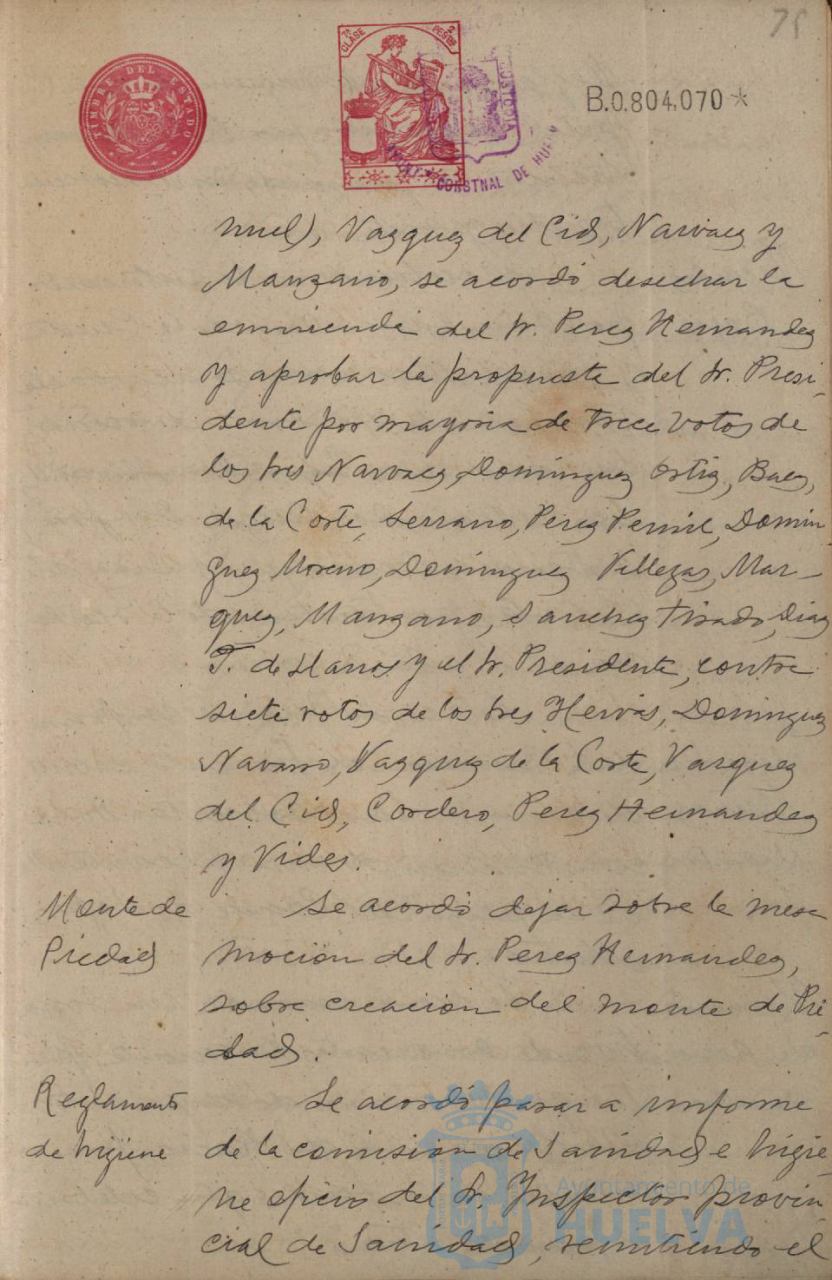 75
TIMBRE DEL ESTADO
7ª CLASE 2 PESETAS
B.0.804,070*
CONSTNAL DE HUELVA
nuel), Vazquez del Cid, Narvaez y
Manzano, se acordó desechar la
enmienda del Sr. Perez Hernandez
y aprobar la propuesta del Sr. Presi-
dente por mayoria de trece votos de
los Sres Narvaez, Dominguez Ortiz, Baez,
de la Corte, Serrano, Perez Pernil, Domin
guez Moreno, Dominguez Villegas, Mar-
quez, Manzano, Sanchez Tirado, Diaz
F. de Llanos y el Sr. Presidente, contra
siete votos de los Sres Hervás, Dominguez
Navarro, Vazquez de la Corte, Vazquez
del Cid, Cordero, Perez Hernandez
y Vides.
Monte de
Piedad
Se acordó dejar sobre la mesa
mocion del Sr. Perez Hernandez,
sobre creacion del monte de Pie-
dad.
Reglamento
de higiene
Se acordó pasar a informe
de la comision de Sanidad e higie-
ne oficio del Sr. Ynspector provin
cial de Sanidad, remitiendo el
Ayuntamiento de
HUELVA